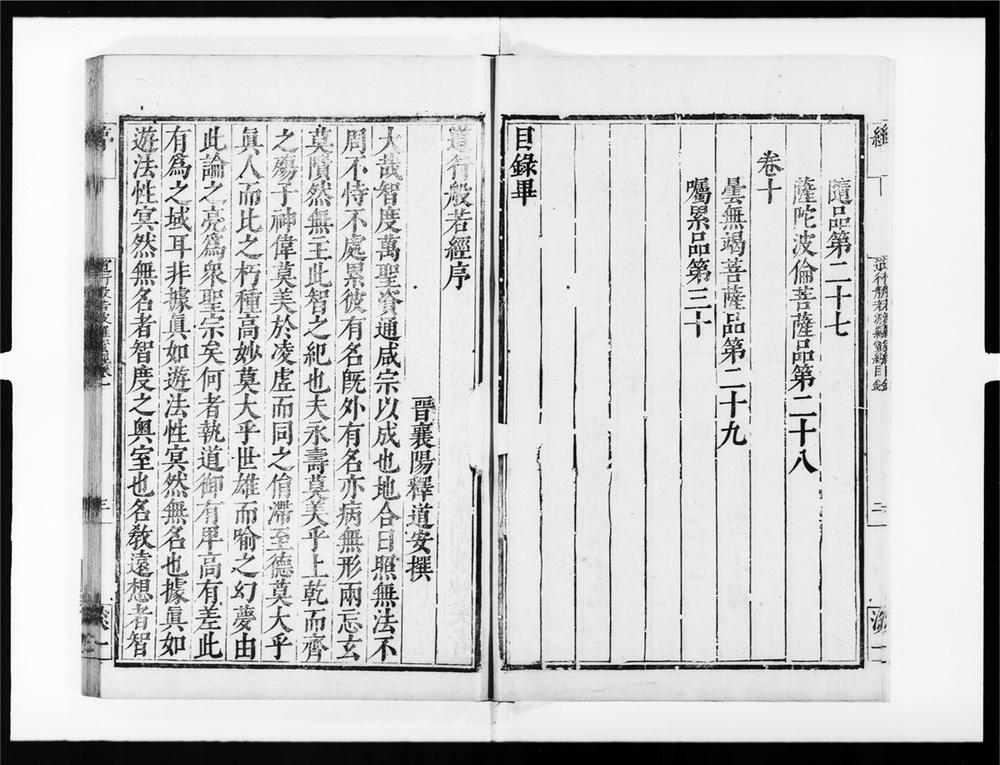 隨品第二十七
薩陀波倫菩薩品第二十八
卷十
曇無竭菩薩品第二十九
囑累品第三十
目錄畢
道行般若經序
晉襄陽釋道安撰
大哉智度萬聖資通咸宗以成也地合日照無法不
周不恃不處累彼有名旣外有名亦病無形兩忘玄
莫隤然無主此智之紀也夫永壽莫美乎上乾而齊
之殤子神偉莫美於凌虛而同之㳙滯至德莫大乎
眞人而比之朽種高妙莫大乎世雄而喻之幻夢由
此論之亮爲衆聖宗矣何者執道御有卑高有差此
有爲之域耳非據眞如遊法性冥然無名也據眞如
遊法性冥然無名者智度之奧室也名敎遠想者智